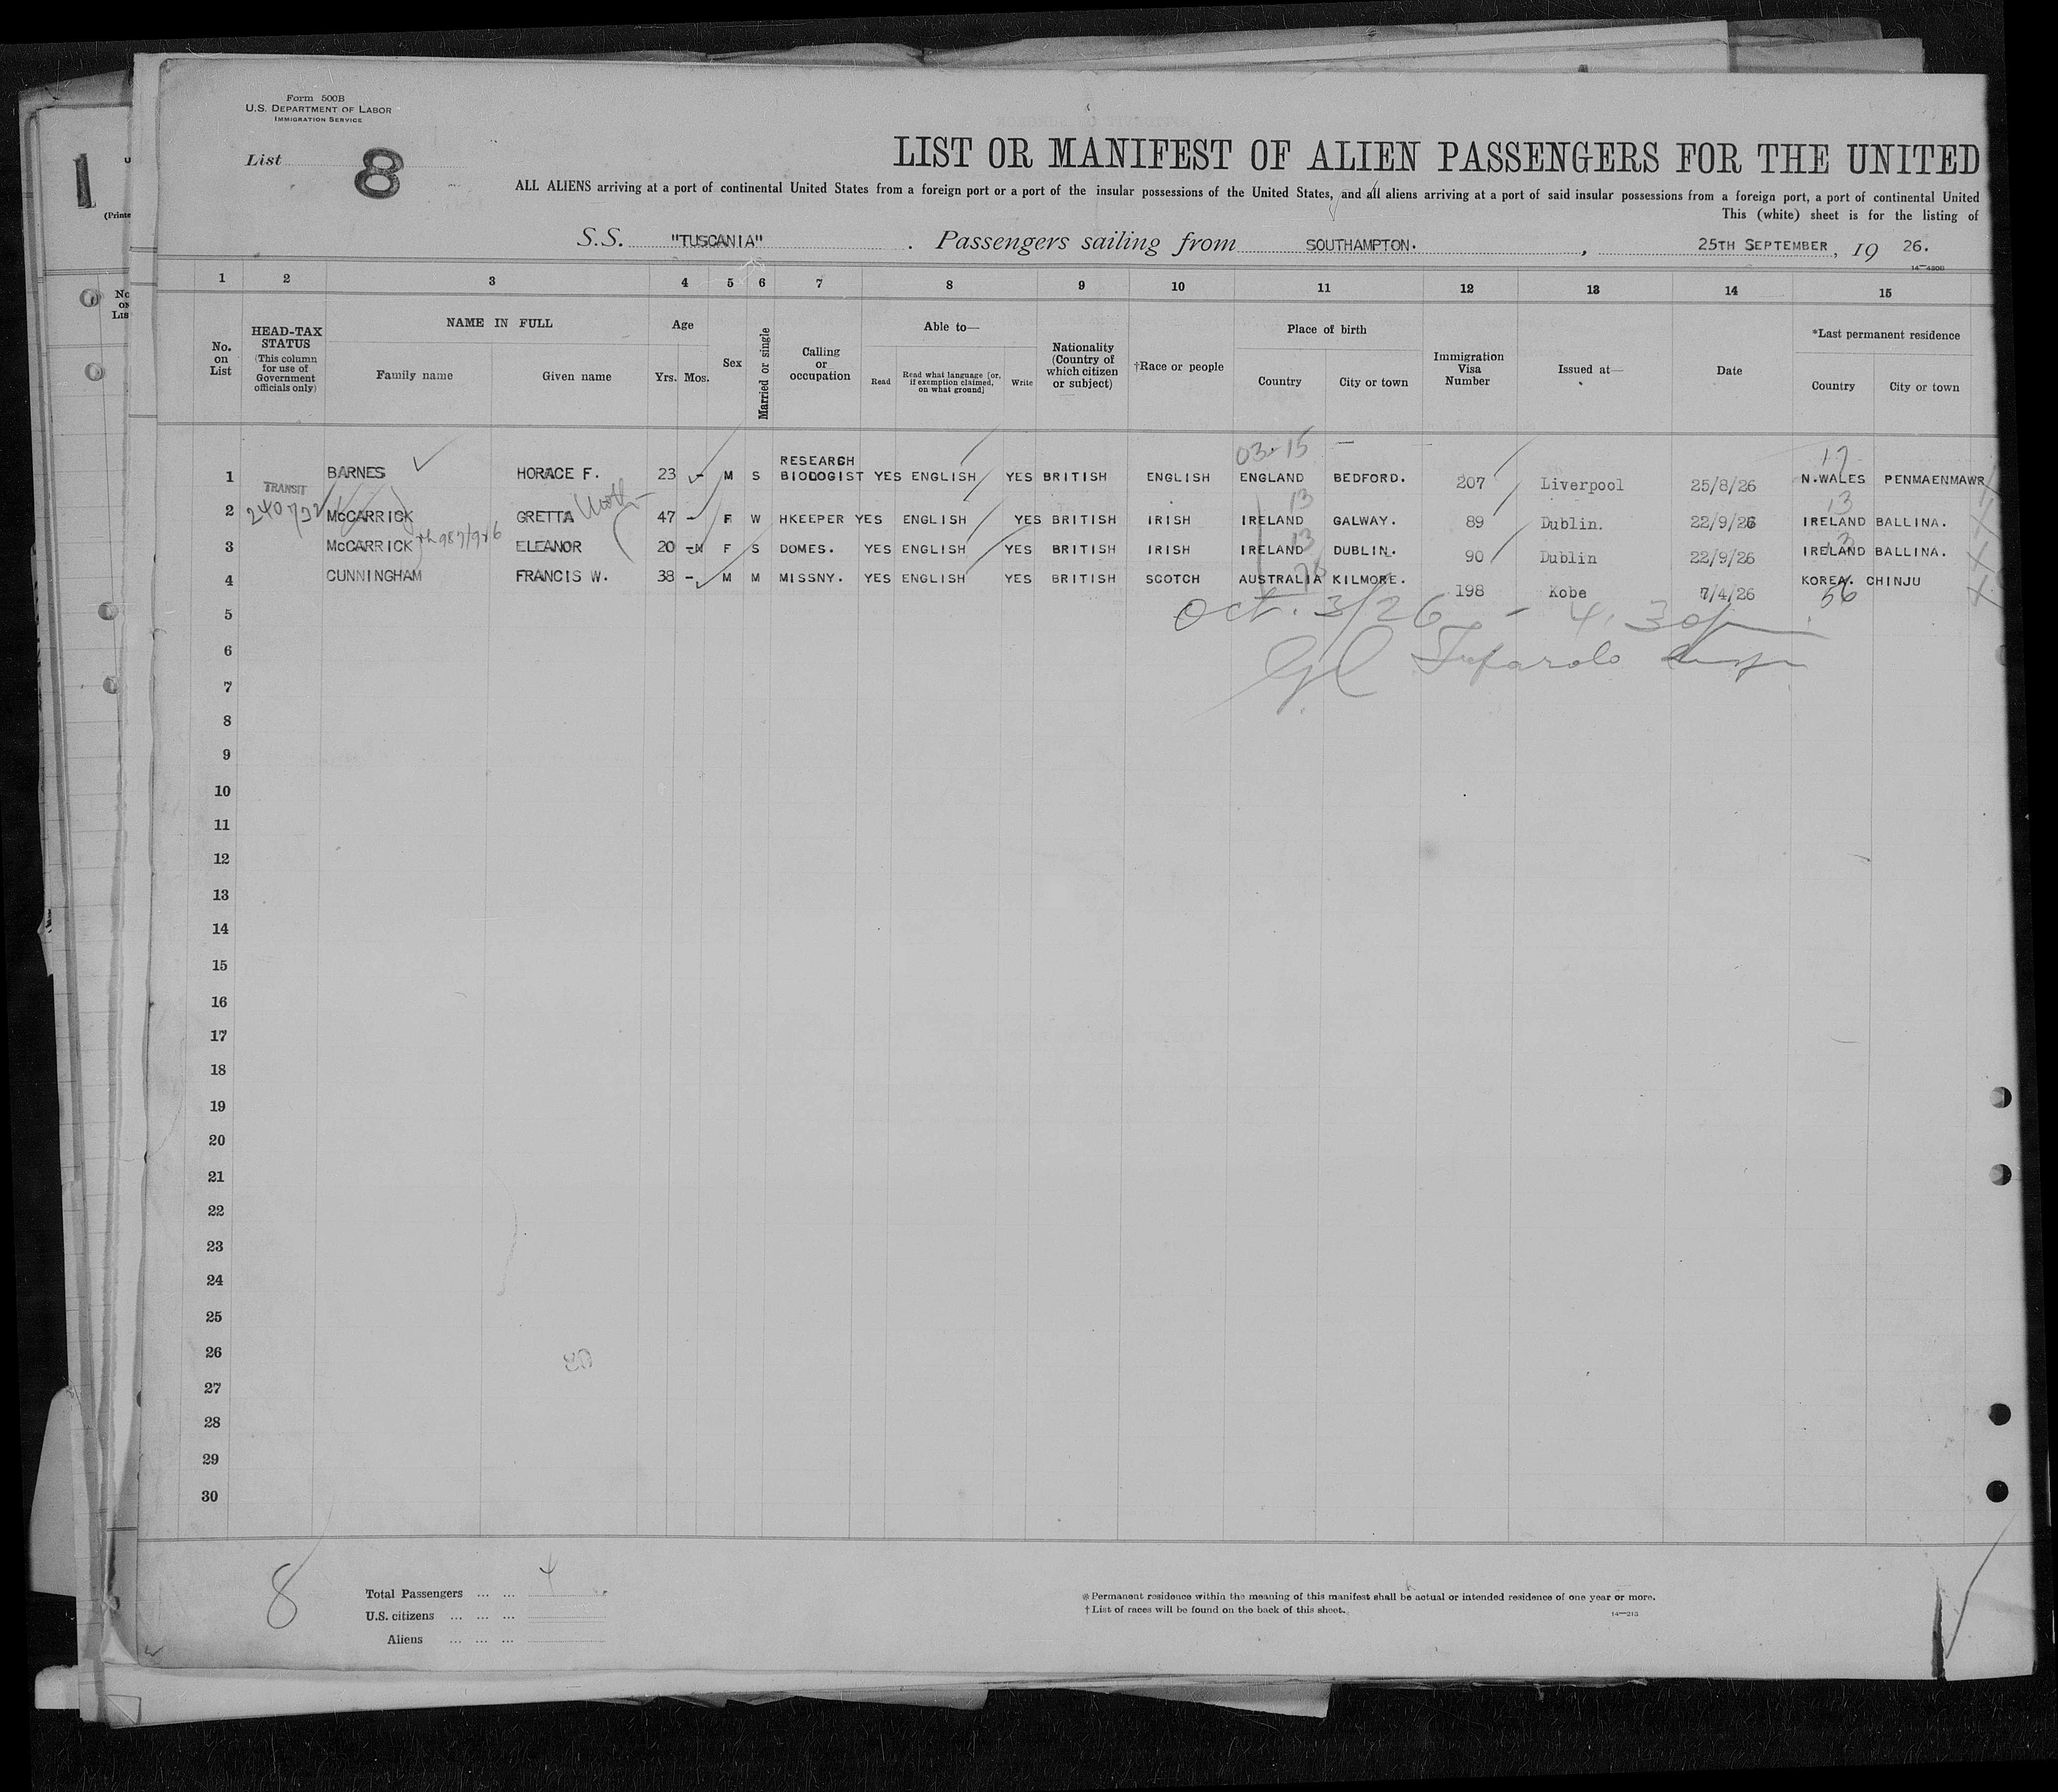 Form 500B
U.S. DEPARTMENT OF LABOR
IMMIGRATION SERVICE
List 8
1
(Printe
LIST OR MANIFEST OF ALIEN PASSENGERS FOR THE UNITED
ALL ALIENS arriving at a port of continental United States from a foreign port or a port of the insular possessions of the United States, and all aliens arriving at a port of said insular possessions from a foreign port, a port of continental United
This (white) sheet is for the listing of
S.S. "TUSCANIA" . Passengers sailing from SOUTHAMPTON. , 25TH SEPTEMBER, 19 26.
1 2 3 4 5 6 7 8 9 10 11 12 13 14 15
No. on List
HEAD-TAX STATUS (This column for use of Government officials only)
NAME IN FULL
Family name Given name
Age
Yrs. Mos.
Sex
Married or single
Calling or occupation
Able to—
Read Read what language [or, if exemption claimed, on what ground] Write
Nationality (Country of which citizen or subject)
†Race or people
Place of birth
Country City or town
Immigration Visa Number
Issued at—
Date
*Last permanent residence
Country City or town
03-15 — 17
1 BARNES HORACE F. 23 - M S RESEARCH BIOLOGIST YES ENGLISH YES BRITISH ENGLISH ENGLAND BEDFORD. 207 Liverpool 25/8/26 N.WALES PENMAENMAWR
TRANSIT
13 13
2 McCARRICK GRETTA 47 - F W HKEEPER YES ENGLISH YES BRITISH IRISH IRELAND GALWAY. 89 Dublin. 22/9/26 IRELAND BALLINA.
13 13
3 McCARRICK ELEANOR 20 - F S DOMES. YES ENGLISH YES BRITISH IRISH IRELAND DUBLIN. 90 Dublin 22/9/26 IRELAND BALLINA.
4 CUNNINGHAM FRANCIS W. 38 - M M MISSNY. YES ENGLISH YES BRITISH SCOTCH AUSTRALIA KILMORE. 198 Kobe 7/4/26 KOREA. CHINJU
56
Oct. 3/26 - 4.30 pm
5
6
7
8
9
10
11
12
13
14
15
16
17
18
19
20
21
22
23
24
25
26
27
28
29
30
8
Total Passengers ... ... 4
U.S. citizens ... ... ...
Aliens ... ... ...
* Permanent residence within the meaning of this manifest shall be actual or intended residence of one year or more.
† List of races will be found on the back of this sheet.
14—213